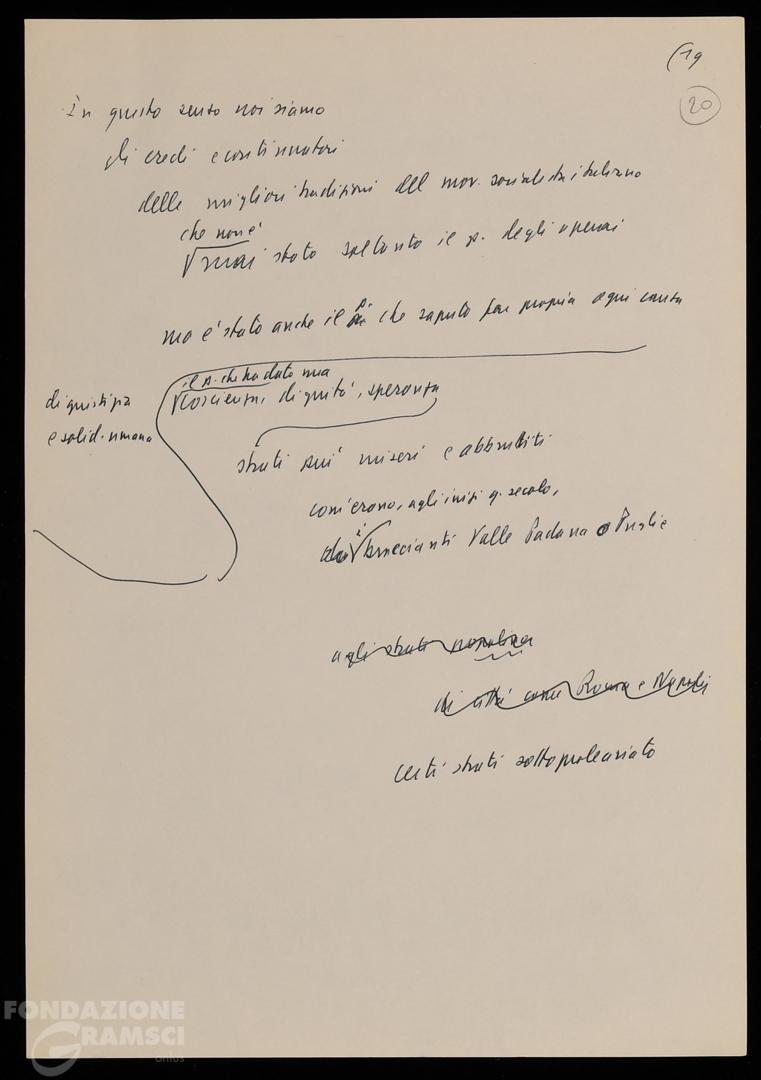 (19
20
In questo senso noi siamo
gli eredi e continuatori
delle migliori tradizioni del mov. socialista italiano
che non è
mai stato soltanto il p. degli operai
ma è stato anche il p. che saputo far propria ogni causa
di giustizia
e solid. umana
il p. che ha dato una
coscienza, dignità, speranza
strati più miseri e abbrutiti
com'erano, agli inizi q. secolo,
i braccianti Valle Padana o Puglie
agli strati popolari
di città come Roma e Napoli
certi strati sottoproleariato
FONDAZIONE
GRAMSCI
onlus